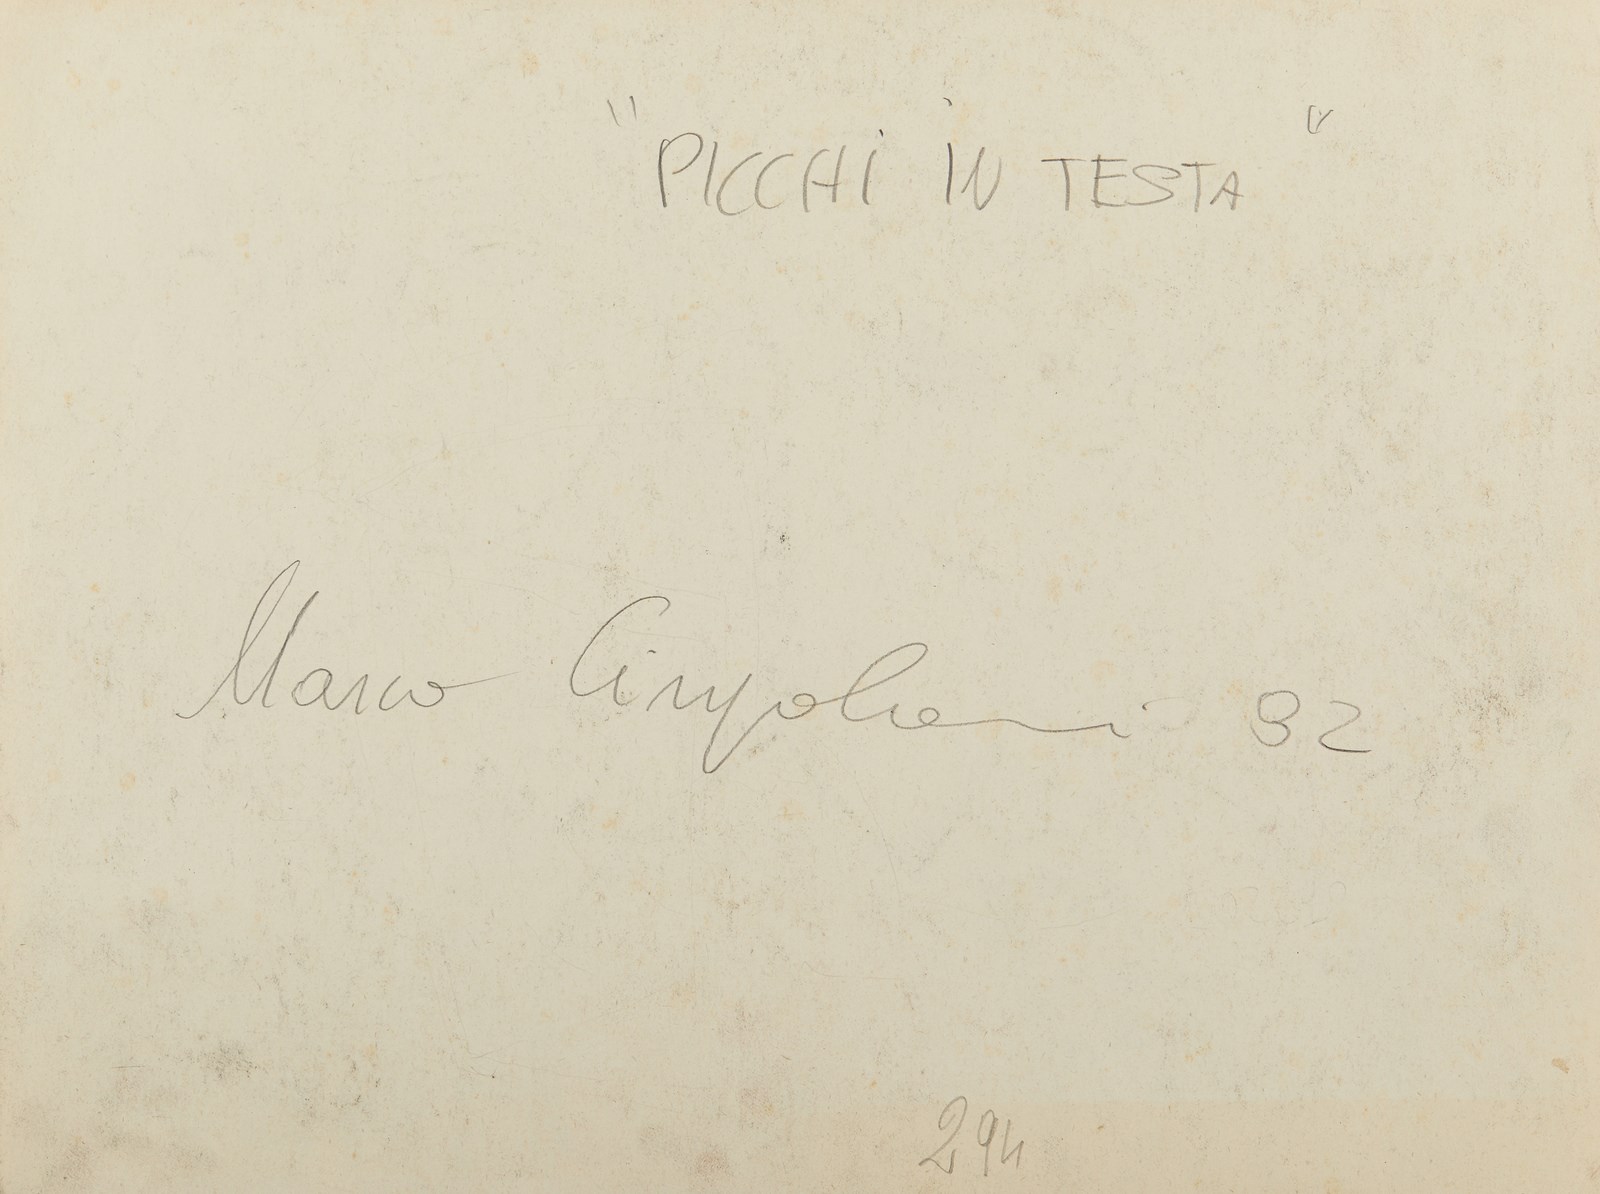 "PICCHI IN TESTA"
Marco Cingolani 92
294